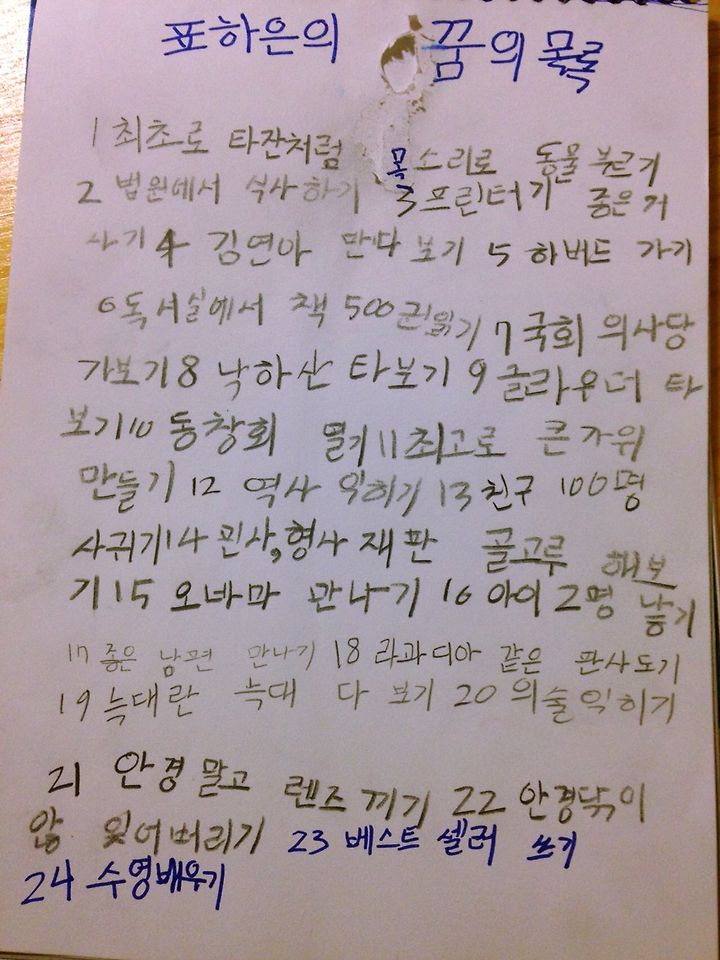 표하은의 꿈의 목록
1 최초로 타잔처럼 목소리로 동물 부르기
2 법원에서 식사하기 3 프린터기 좋은거
사기 4 김연아 만나보기 5 하버드 가기
6 독서실에서 책 500권읽기 7 국회 의사당
가보기 8 낙하산 타보기 9 글라우더 타
보기 10 동창회 열기 11 최고로 큰 가위
만들기 12 역사 익히기 13 친구 100명
사귀기 14 민사,형사 재판 골고루 해보
기 15 오바마 만나기 16 아이 2명 낳기
17 좋은 남편 만나기 18 라과디아 같은 판사되기
19 늑대란 늑대 다 보기 20 의술익히기
21 안경 말고 렌즈 끼기 22 안경닦이
않 잊어버리기 23 베스트 셀러 쓰기
24 수영배우기